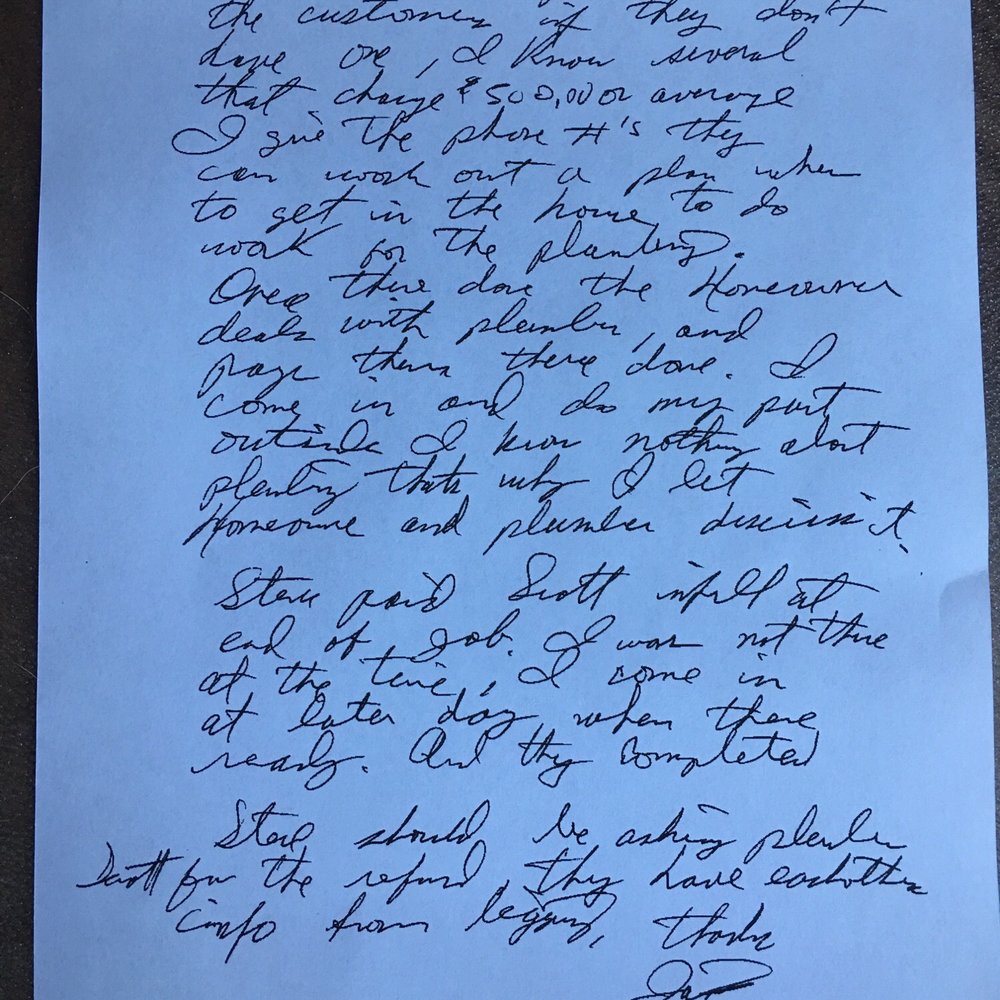 the customer if they don't
have one, I know several
that charge $500,00 or average
I give the phone #'s they
can work out a plan when
to get in the home, to do
work for the plumbing.
Once there done the Homeowner
deals with plumber, and
pays them there done. I
come in and do my part
outside I know nothing about
plumbing thats why I let
Homeowner and plumber discuss it.
Steve paid Scott infull at
end of Job. I was not there
at the time, I come in
at later day when there
ready. And they completed
Steve should be asking plumber
Scott for the refund, they have eachother
info from begining, thanks